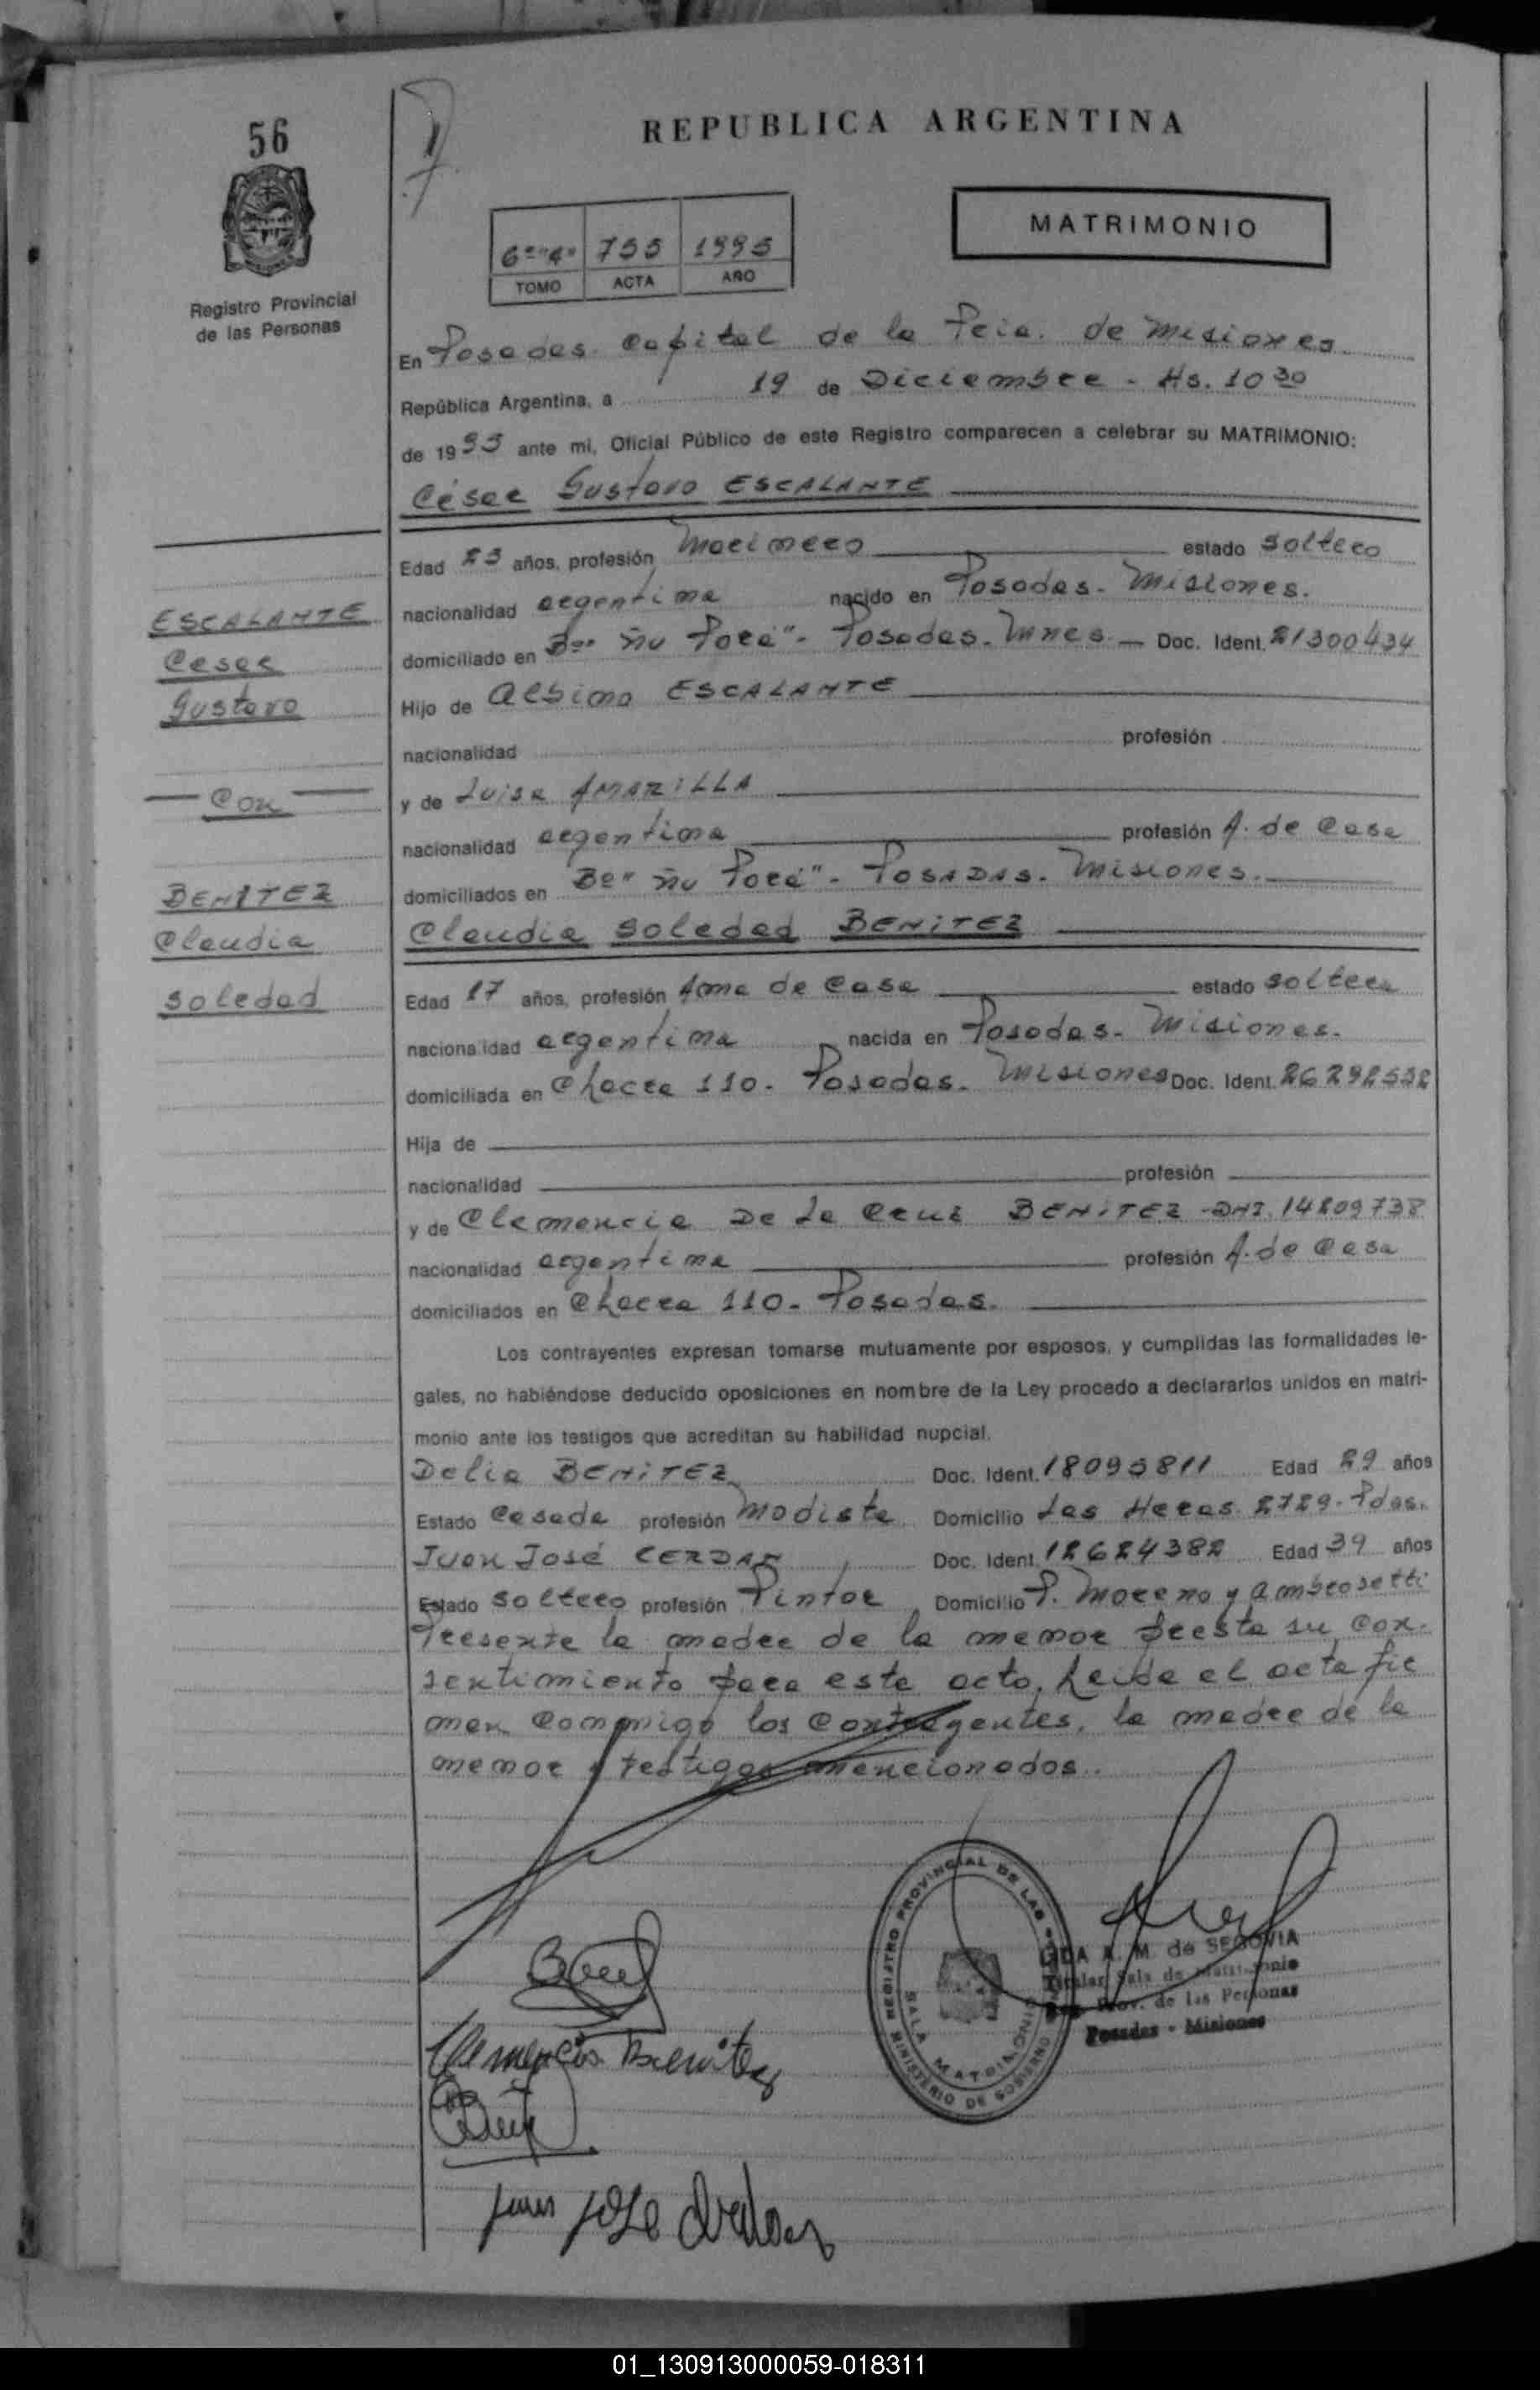 56
REPUBLICA ARGENTINA
MATRIMONIO
6º "4" 755 1995
TOMO ACTA AÑO
Registro Provincial
de las Personas
En Posadas Capital de la Pcia. de Misiones
República Argentina, a 19 de Diciembre - Hs. 10 30
de 1995 ante mi, Oficial Público de este Registro comparecen a celebrar su MATRIMONIO:
César Gustavo ESCALANTE
Edad 25 años, profesión Marinero estado soltero
ESCALANTE
César
Gustavo
nacionalidad argentina nacido en Posadas - Misiones.
domiciliado en Bº " Ñu Porá" - Posadas - Mnes - Doc. Ident. 21300434
Hijo de Albino ESCALANTE
nacionalidad profesión
Con
y de Luisa AMARILLA
nacionalidad argentina profesión A. de Casa
domiciliados en Bº " Ñu Porá" - POSADAS - Misiones.
BENITEZ
Claudia
Soledad
Claudia Soledad BENITEZ
Edad 17 años, profesión Ama de Casa estado soltera
nacionalidad argentina nacida en Posadas - Misiones.
domiciliada en Chacra 110 - Posadas - Misiones Doc. Ident. 26292552
Hija de
nacionalidad profesión
y de Clemencia De La Cruz BENITEZ - DNI. 14209738
nacionalidad argentina profesión A. de Casa
domiciliados en Chacra 110 - Posadas.
Los contrayentes expresan tomarse mutuamente por esposos, y cumplidas las formalidades le-
gales, no habiéndose deducido oposiciones en nombre de la Ley procedo a declararlos unidos en matri-
monio ante los testigos que acreditan su habilidad nupcial.
Delia BENITEZ Doc. Ident. 18095811 Edad 29 años
Estado Casada profesión Modista Domicilio Las Heras 2729 - Pdas.
Juan José CERDAN Doc. Ident. 12624382 Edad 39 años
Estado Soltero profesión Pintor Domicilio P. Moreno y Ambrosetti
Presente la madre de la menor presta su con-
sentimiento para este acto. Leida el acta fir
man conmigo los contrayentes, la madre de la
menor y testigos mencionados.
REGISTRO PROVINCIAL DE LAS
SALA MATRIMONIO
MINISTERIO DE GOBIERNO
A. M. de SEGOVIA
Titular Sala de Matrimonio
Reg. Prov. de las Personas
Posadas - Misiones
Clemencia Benitez
Juan Jose
01_130913000059-018311